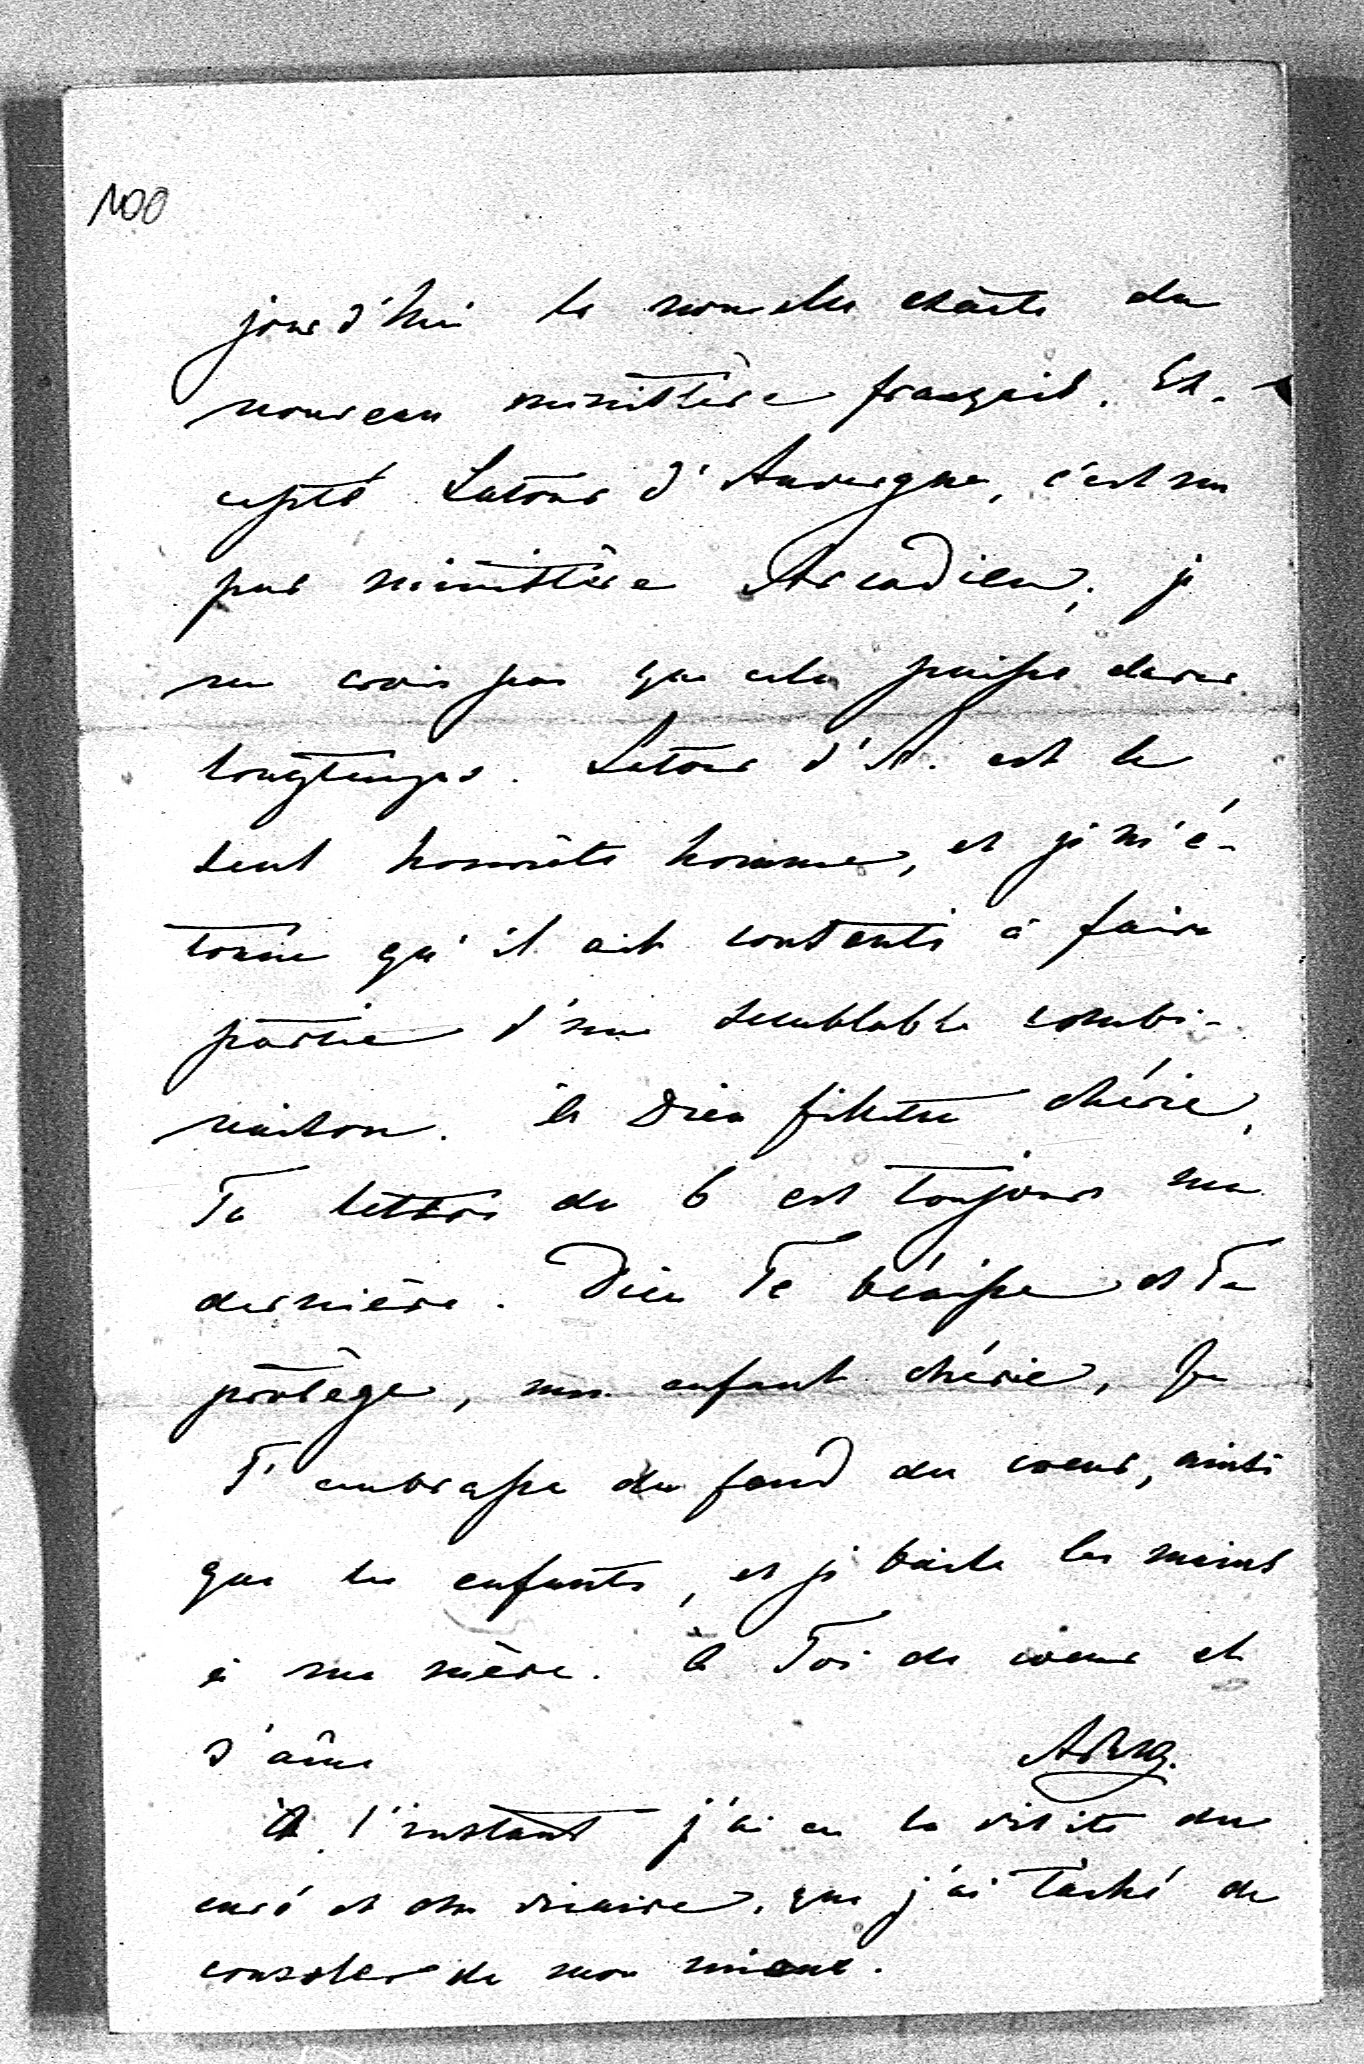 100
jourd'hui la nouvelle exacte du
nouveau ministère français. Ex-
cepté Latour d'Auvergne, c'est un
pur ministère Arcadien; je
ne crois pas que cela puisse durer
longtemps. Latour d'A. est le
seul honnête homme, et je m'é-
tonne qu'il ait consenti à faire
partie d'une semblable combi-
naison. à Dieu fillette chérie,
Ta lettre du 6 est toujours ma
dernière. Dieu Te bénisse et Te
protège, mon enfant chérie, Je
T'embrasse du fond du coeur, ainsi
que les enfants, et je baise les mains
à ma mère. à Toi de coeur et
d'âme
À l'instant j'ai eu la visite du
curé et du vicaire, que j'ai tâché de
consoler de mon mieux.